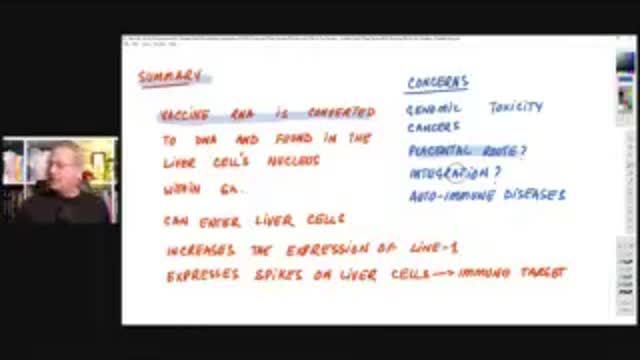 SUMMARY
VACCINE RNA IS CONVERTED
TO DNA AND FOUND IN THE
LIVER CELL'S NUCLEUS
WITHIN 6H.
CAN ENTER LIVER CELLS
INCREASES THE EXPRESSION OF LINE-1
EXPRESSES SPIKES ON LIVER CELLS → IMMUNO TARGET
CONCERNS
GENOMIC TOXICITY
CANCERS
PLACENTAL ROUTE?
INTEGRATION?
AUTO-IMMUNE DISEASES